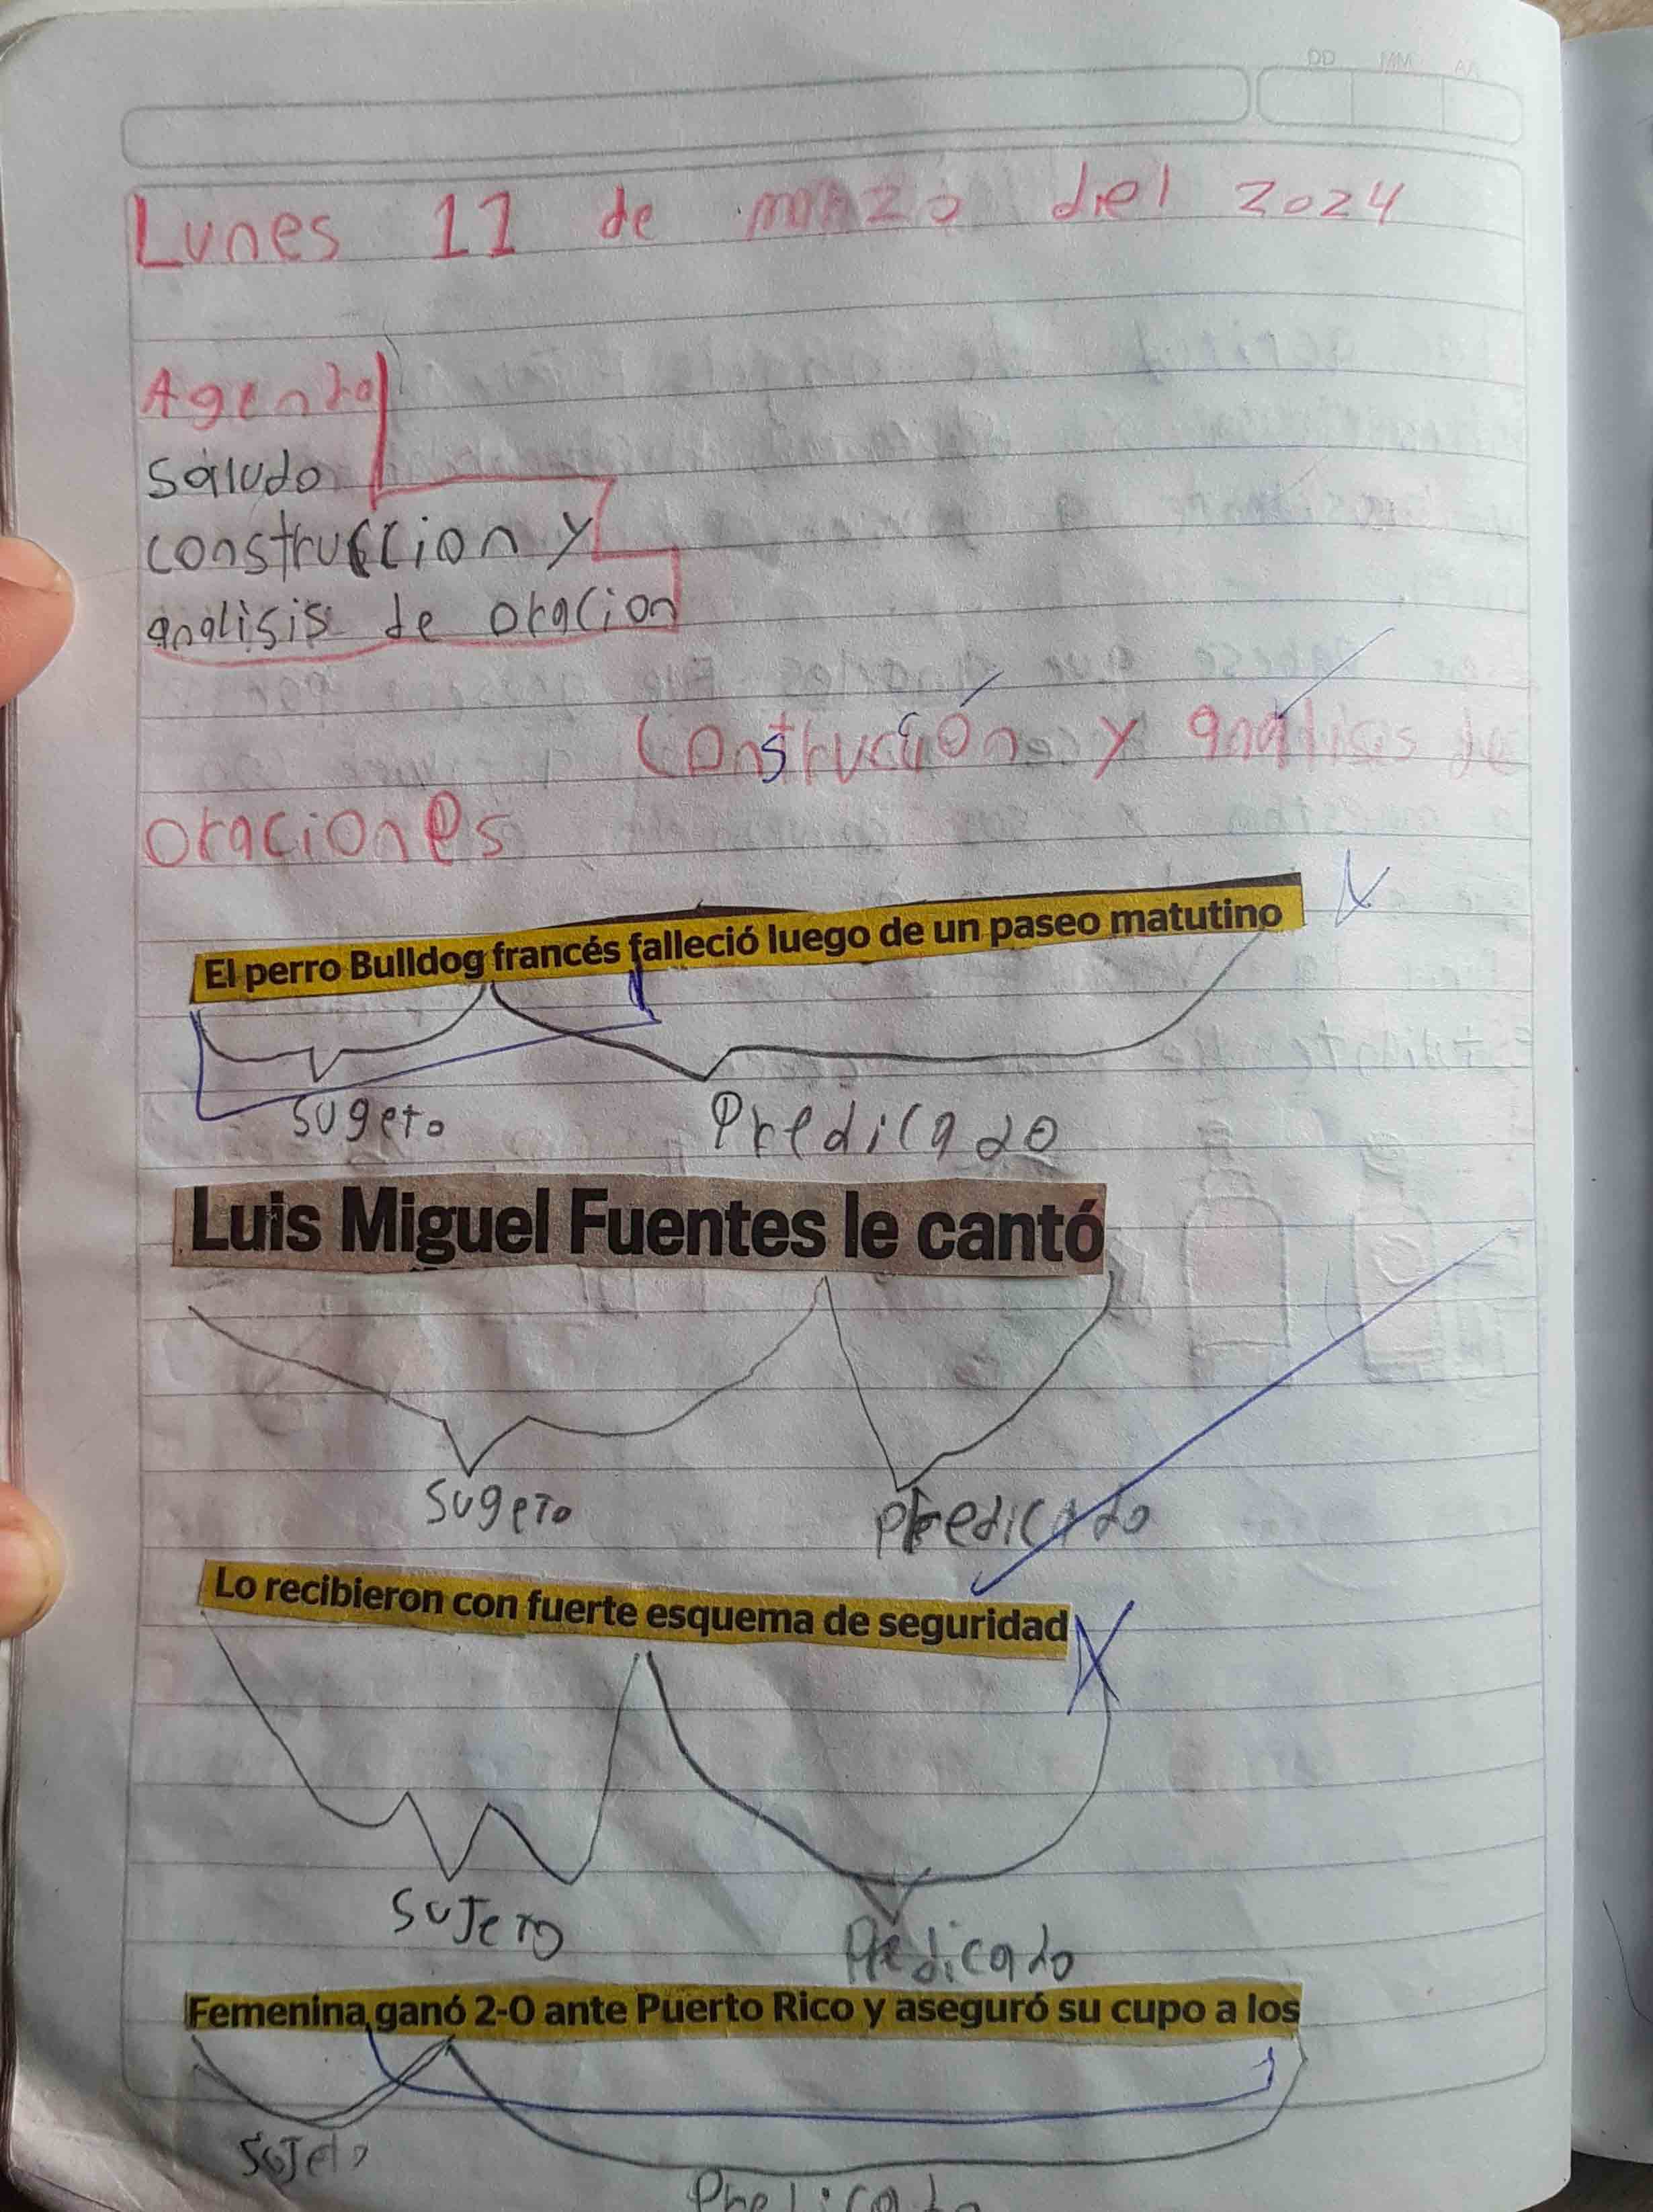 DD MM AA
Lunes 11 de marzo del 2024
Agenda
saludo
construccion y
analisis de oracion
Construcción y análisis de
oraciones
El perro Bulldog francés falleció luego de un paseo matutino
sugeto Predicado
Luis Miguel Fuentes le cantó
sugeto predicado
Lo recibieron con fuerte esquema de seguridad
sujeto Predicado
Femenina ganó 2-0 ante Puerto Rico y aseguró su cupo a los
sujeto
Predicado